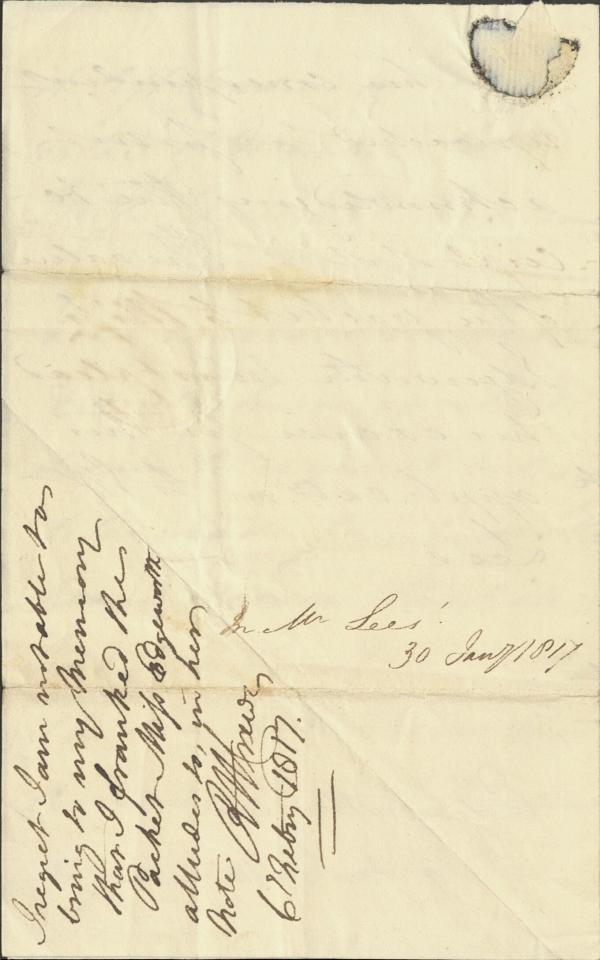 I regret I am not able to
bring to my Memory
that I franked the
Packet Miss Edgeworth
alludes to, in her
Note
6th Febry 1817.
In Mr Lees'
30 Jany 1817